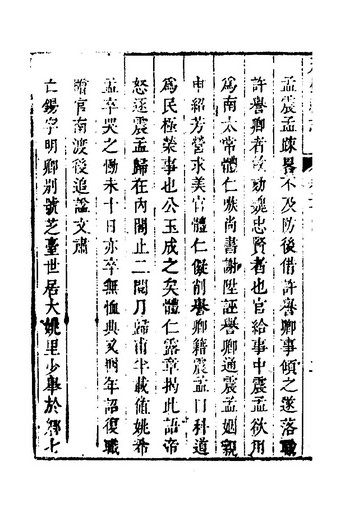 孟震孟疎畧不及防後借許譽卿事傾之遂落職
許譽卿者故劾魏忠賢者也官給事中震孟欲用
爲南太常體仁嗾尚書謝陞誣譽卿通震孟姻親
申紹芳營求美官體仁擬削譽卿籍震孟曰科道
爲民極榮事也公玉成之矣體仁露章揭此語帝
怒逐震孟歸在內閣止二閱月歸甫半載値姚希
孟卒哭之慟未十日亦卒無恤典又明年詔復職
贈官南渡後追諡文肅
亡錫字明卿別號芝臺世居大姚里少舉於鄉七